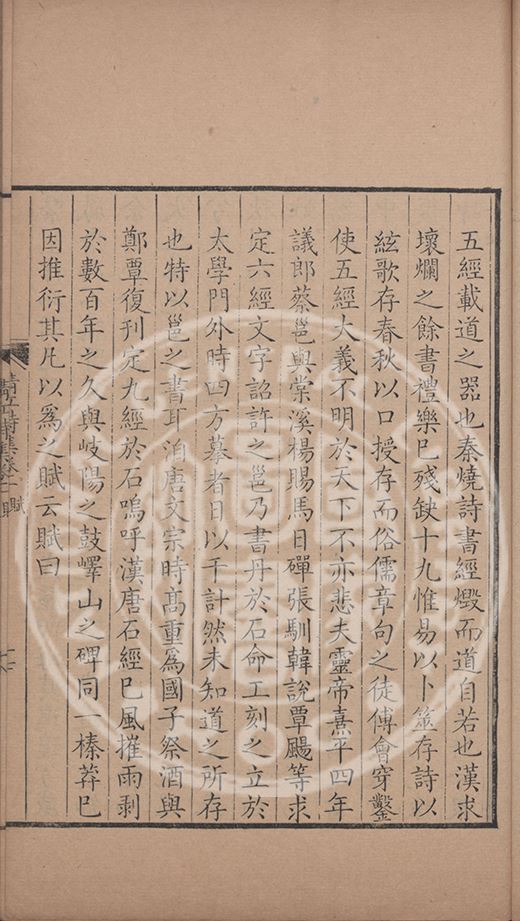 五經載道之器也秦燒詩書經燬而道自若也漢求
壞爛之餘書禮樂已殘缺十九惟易以卜筮存詩以
絃歌存春秋以口授存而俗儒章句之徒傅會穿鑿
使五經大義不明於天下不亦悲夫靈帝熹平四年
議郎蔡邕與棠溪楊賜馬日磾張馴韓說覃颺等求
定六經文字詔許之邕乃書丹於石命工刻之立於
太學門外時四方摹者日以千計然未知道之所存
也特以邕之書耳洎唐文宗時高重爲國子祭酒與
鄭覃復刊定九經於石嗚呼漢唐石經已風摧雨剥
於數百年之久與岐陽之鼓嶧山之碑同一榛莽已
因推衍其凡以爲之賦云賦曰